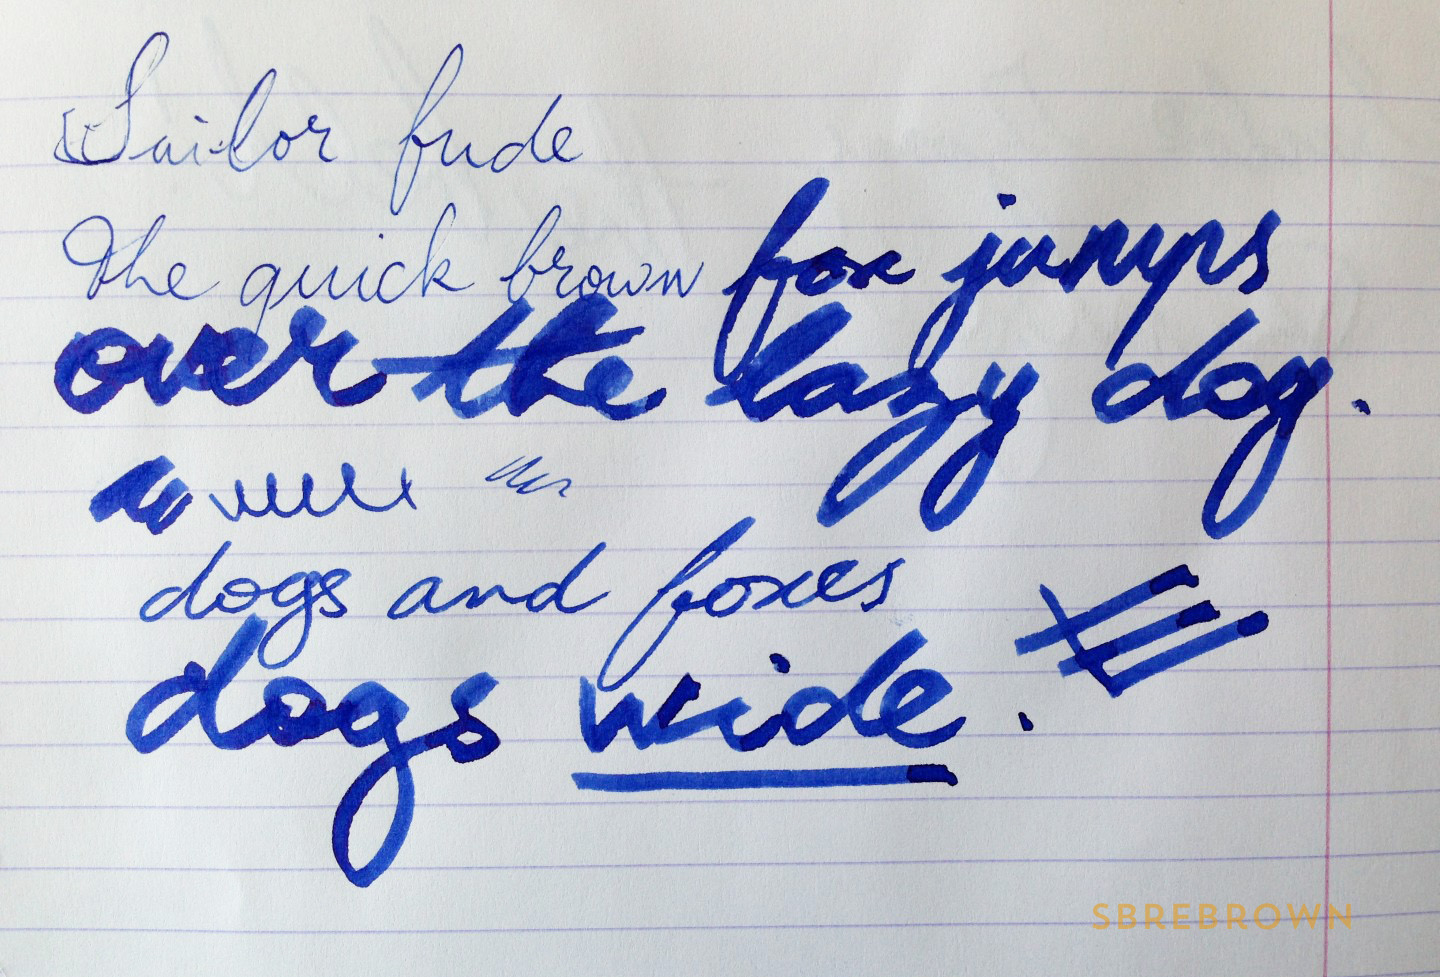 Sailor fude
The quick brown fox jumps
over the lazy dog.
dogs and foxes
dogs wide.
SBREBROWN